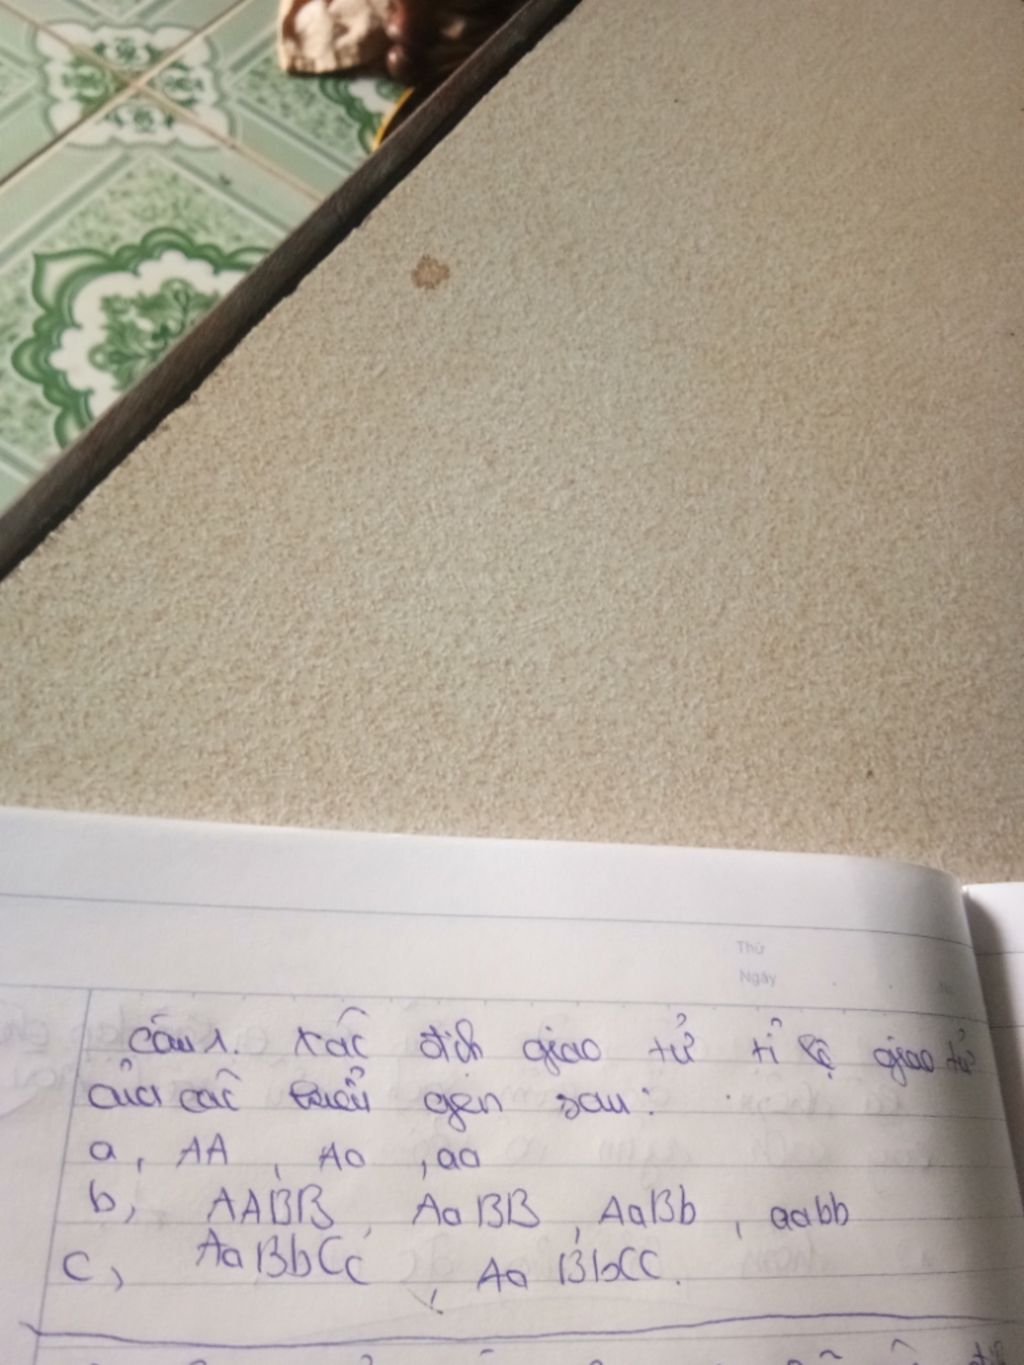 Thứ
Ngày
No.
Câu 1. Xác định giao tử tỉ lệ giao tử
của các kiểu gen sau:
a, AA , Aa , aa
b, AABB, AaBB, AaBb, aabb
c, AaBbCc , AaBbCC.